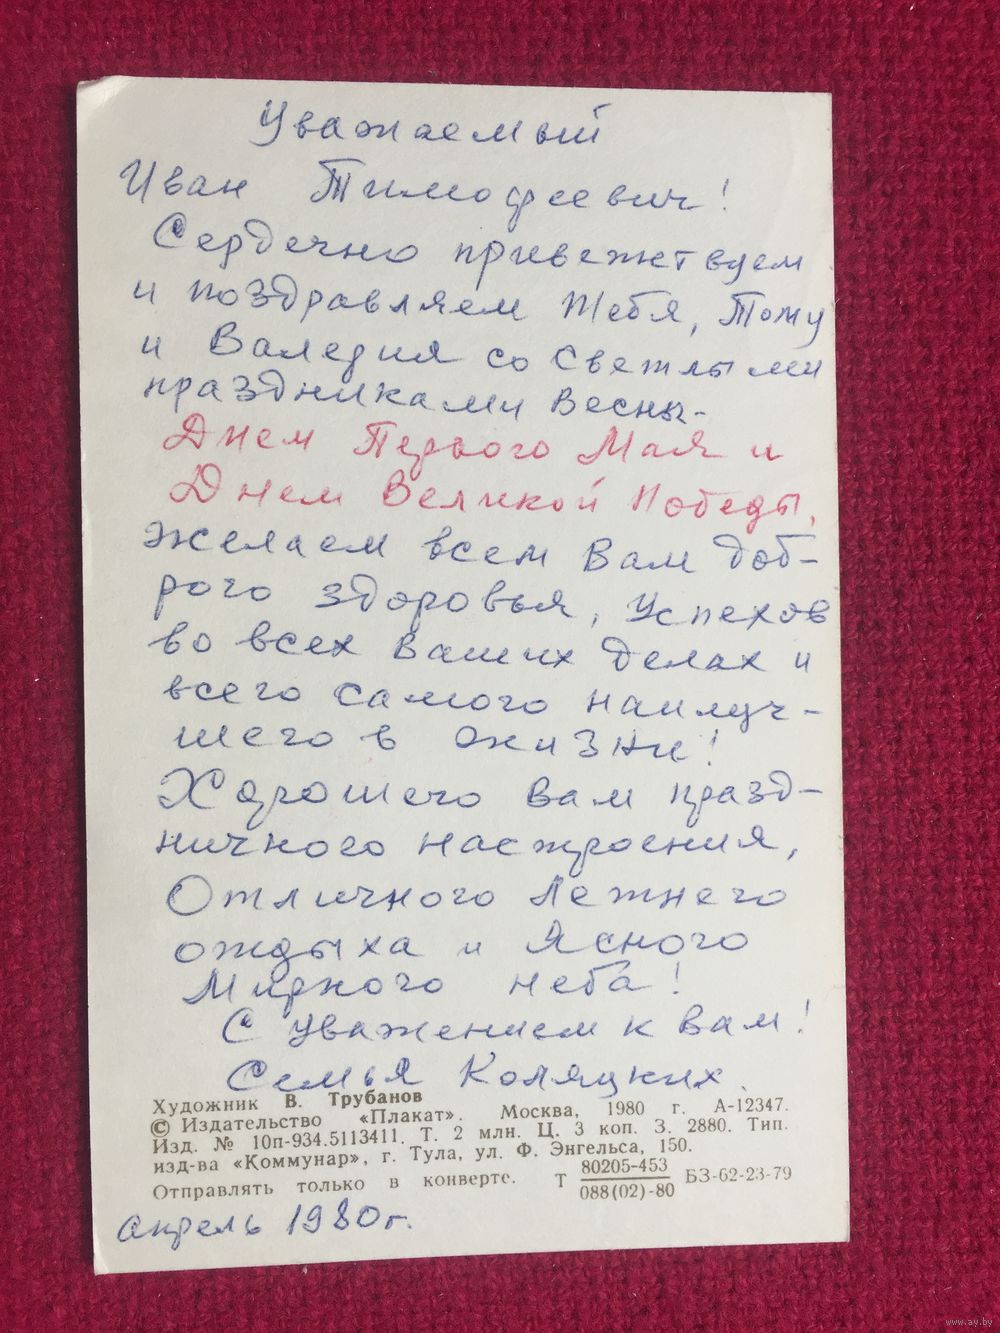 Уважаемый
Иван Тимофеевич!
Сердечно приветствуем
и поздравляем тебя, Тому
и Валерия со светлыми
праздниками Весны-
Днем Первого Мая и
Днем Великой Победы,
желаем всем Вам доб-
рого здоровья, успехов
во всех ваших делах и
всего самого наилуч-
шего в жизни!
Хорошего вам празд-
ничного настроения,
Отличного летнего
отдыха и ясного
Мирного неба!
С уважением к вам!
Семья Коляцких.
Художник В. Трубанов
© Издательство «Плакат». Москва, 1980 г. А-12347.
Изд. № 10п-934.5113411. Т. 2 млн. Ц. 3 коп. З. 2880. Тип.
изд-ва «Коммунар», г. Тула, ул. Ф. Энгельса, 150.
Отправлять только в конверте. Т 80205-453 БЗ-62-23-79
088(02)-80
апрель 1980г.
www.ay.by